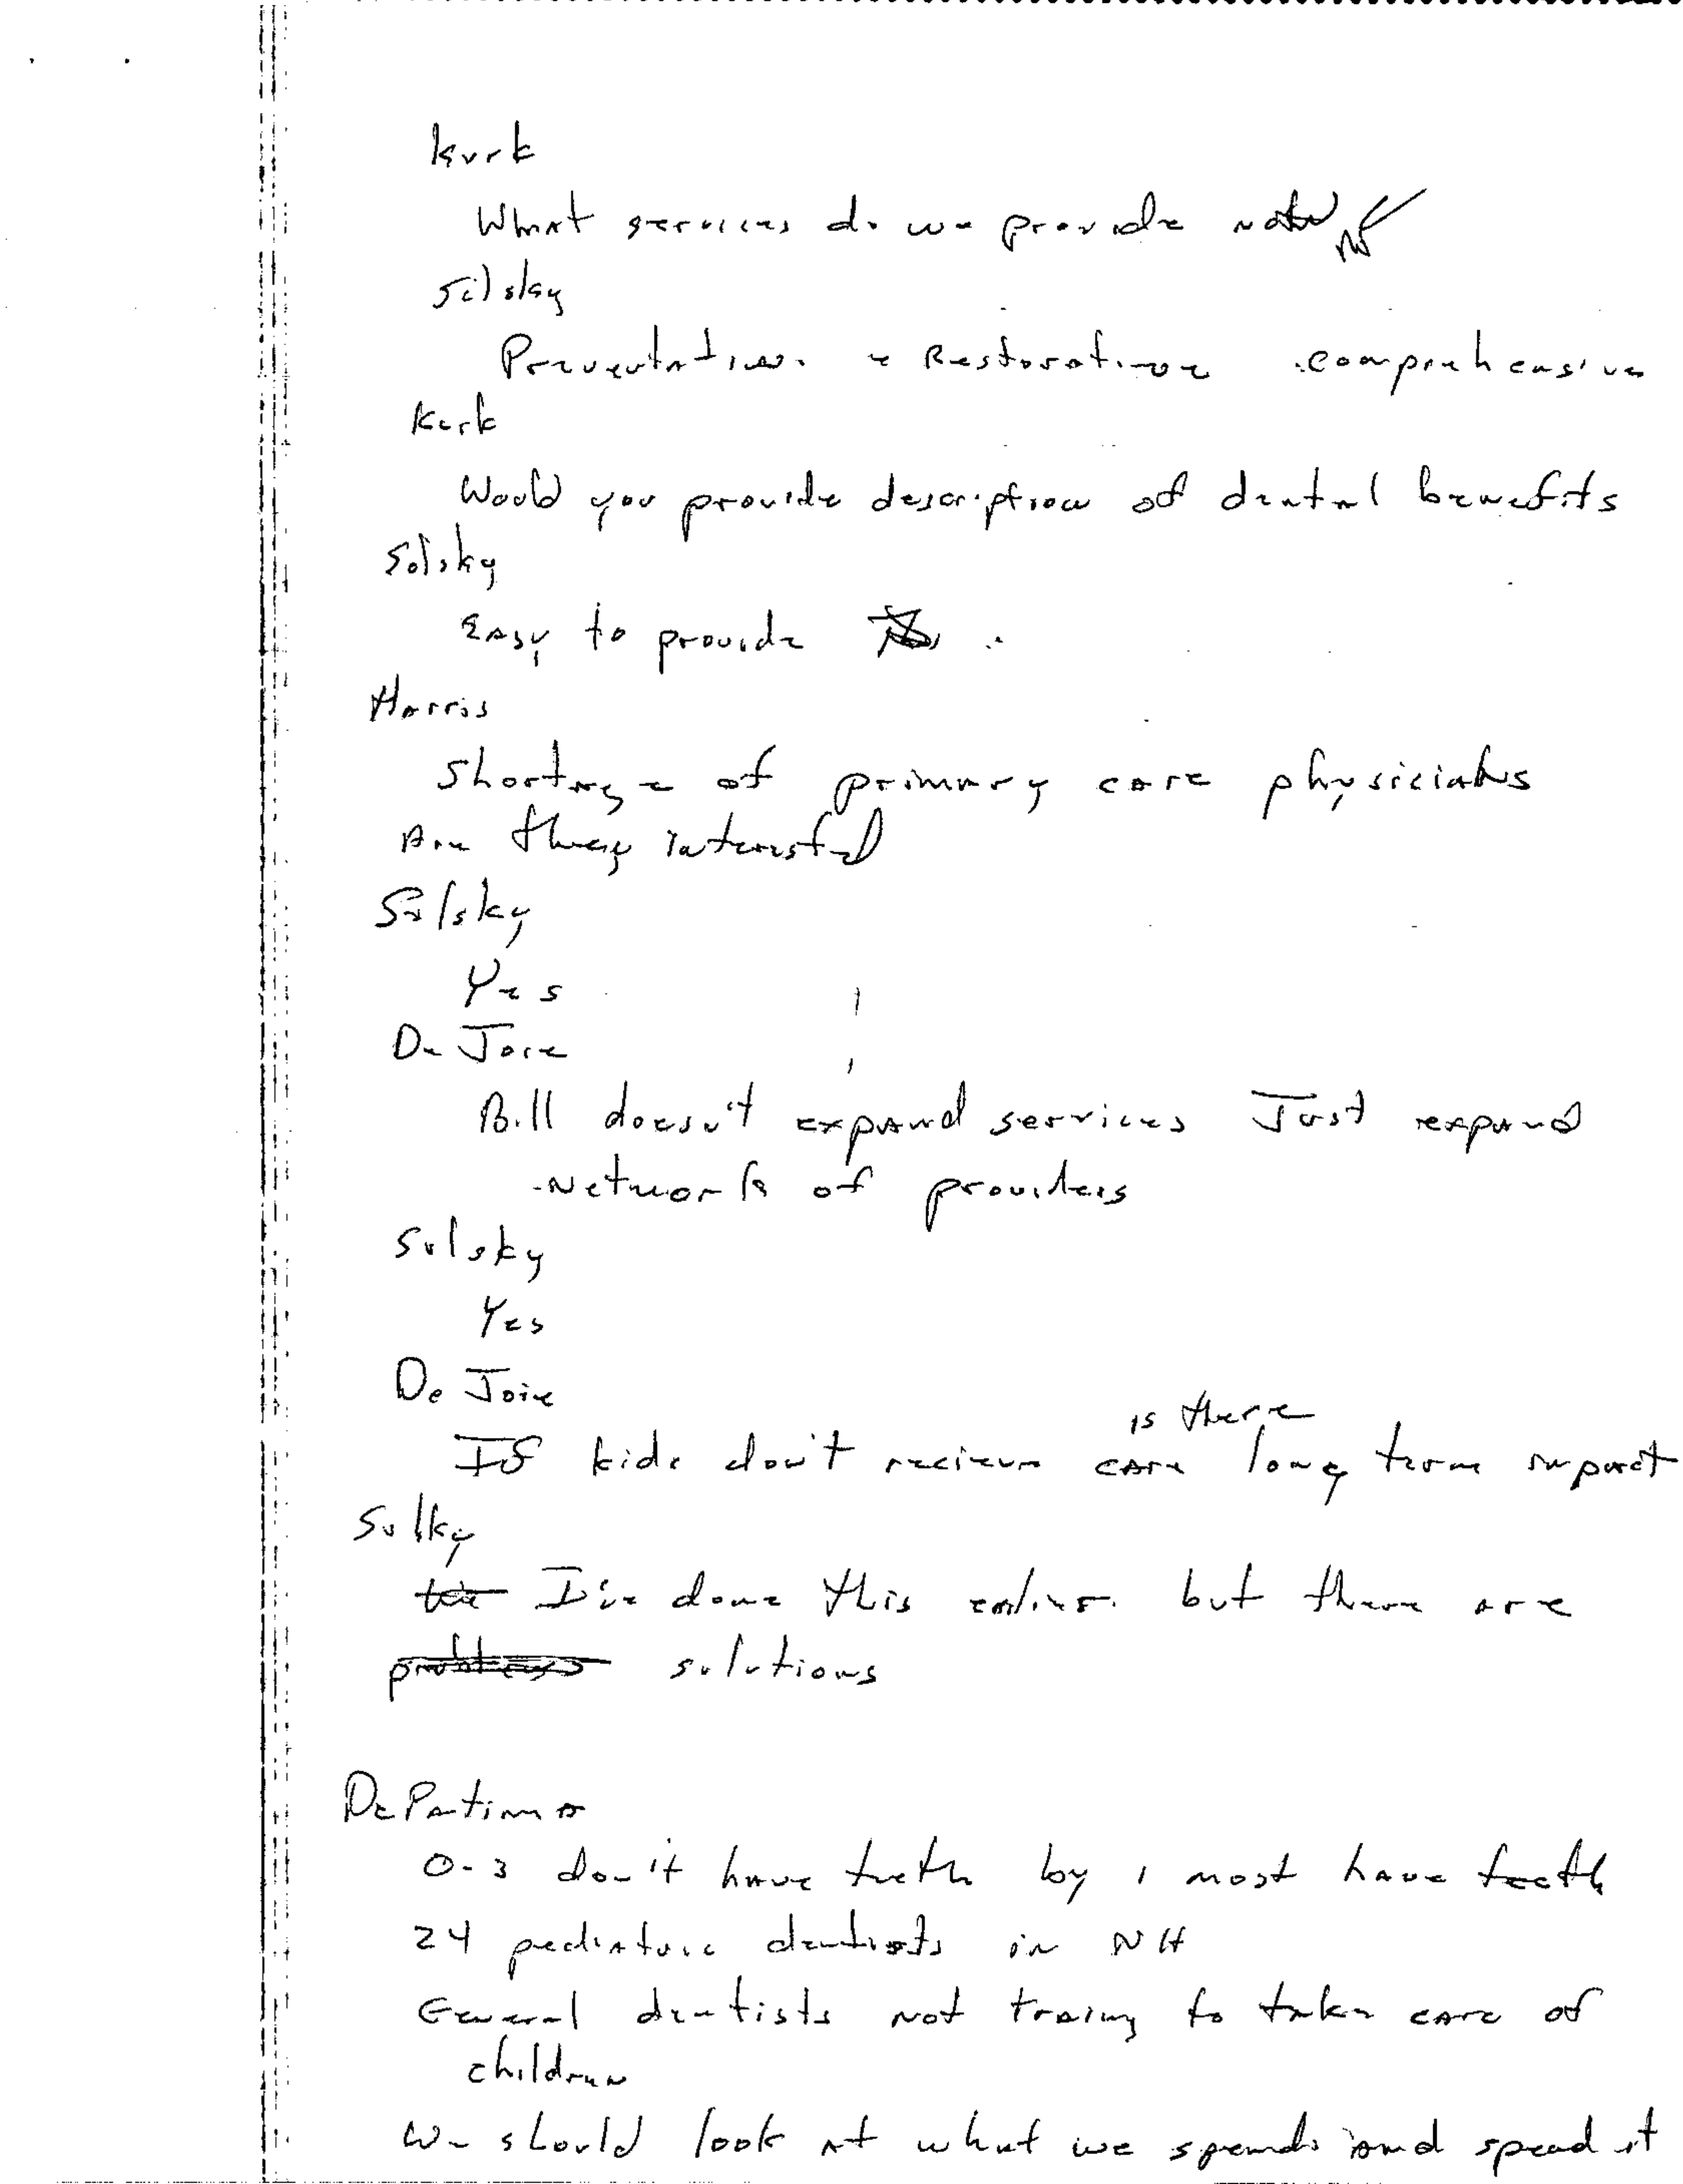 Kurk
What services do we provide
Silsky
Preventative & Restorative comprehensive
Kurk
Would you provide description of dental benefits
Solsky
Easy to provide
Harris
Shortage of primary care physicians
Are they interested
Solsky
Yes
De Joie
Bill doesn't expand services Just expand
Network of providers
Solsky
Yes
De Joie
is there
If kids don't recieve care long term impact
Solky
I've done this but there are
solutions
DePatima
0-3 don't have teeth by 1 most have teeth
24 pediatric dentists in NH
General dentists not traing to take care of
children
We should look at what we spends and spend it